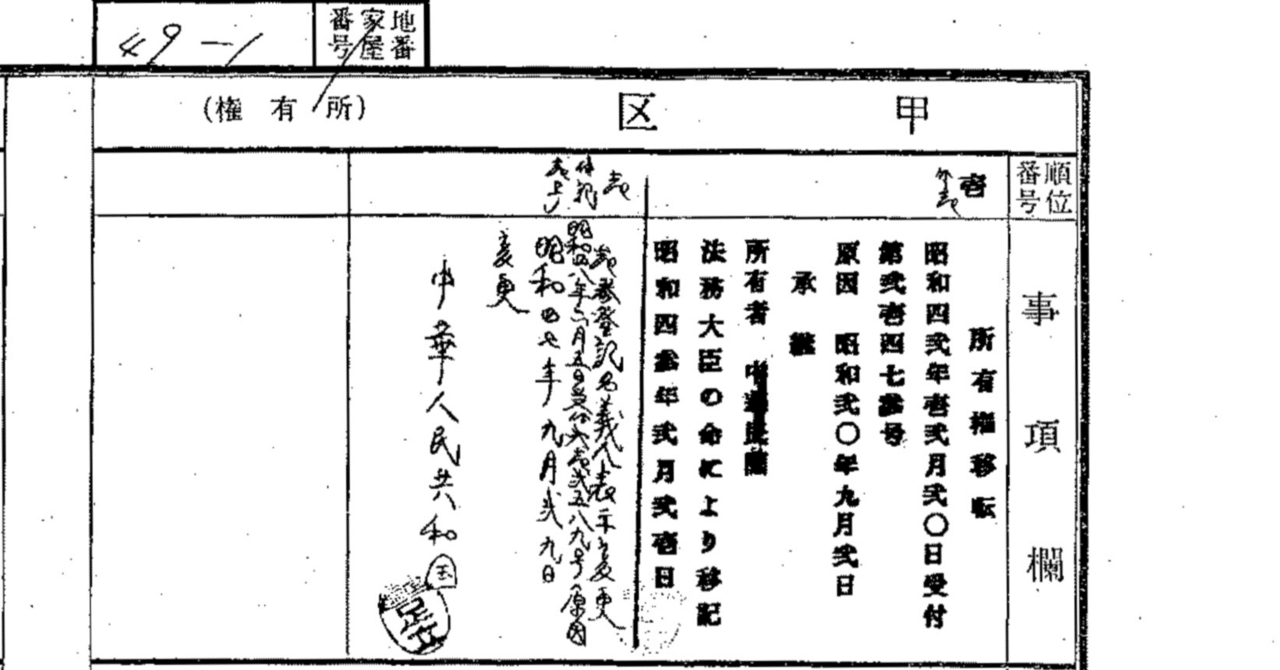 49-1
地番
家屋
番号
甲区(所有権)
順位
番号
事項欄
壱
所有権移転
昭和四弐年壱弐月弐〇日受付
第弐壱四七参号
原因 昭和弐〇年九月弐日
承継
所有者 中華民国
法務大臣の命により移記
昭和四参年弐月弐壱日
付記
壱番登記名義人表示変更
昭和四八年六月五日受付
五八九号原因
昭和四七年九月弐九日
変更
中華人民共和国